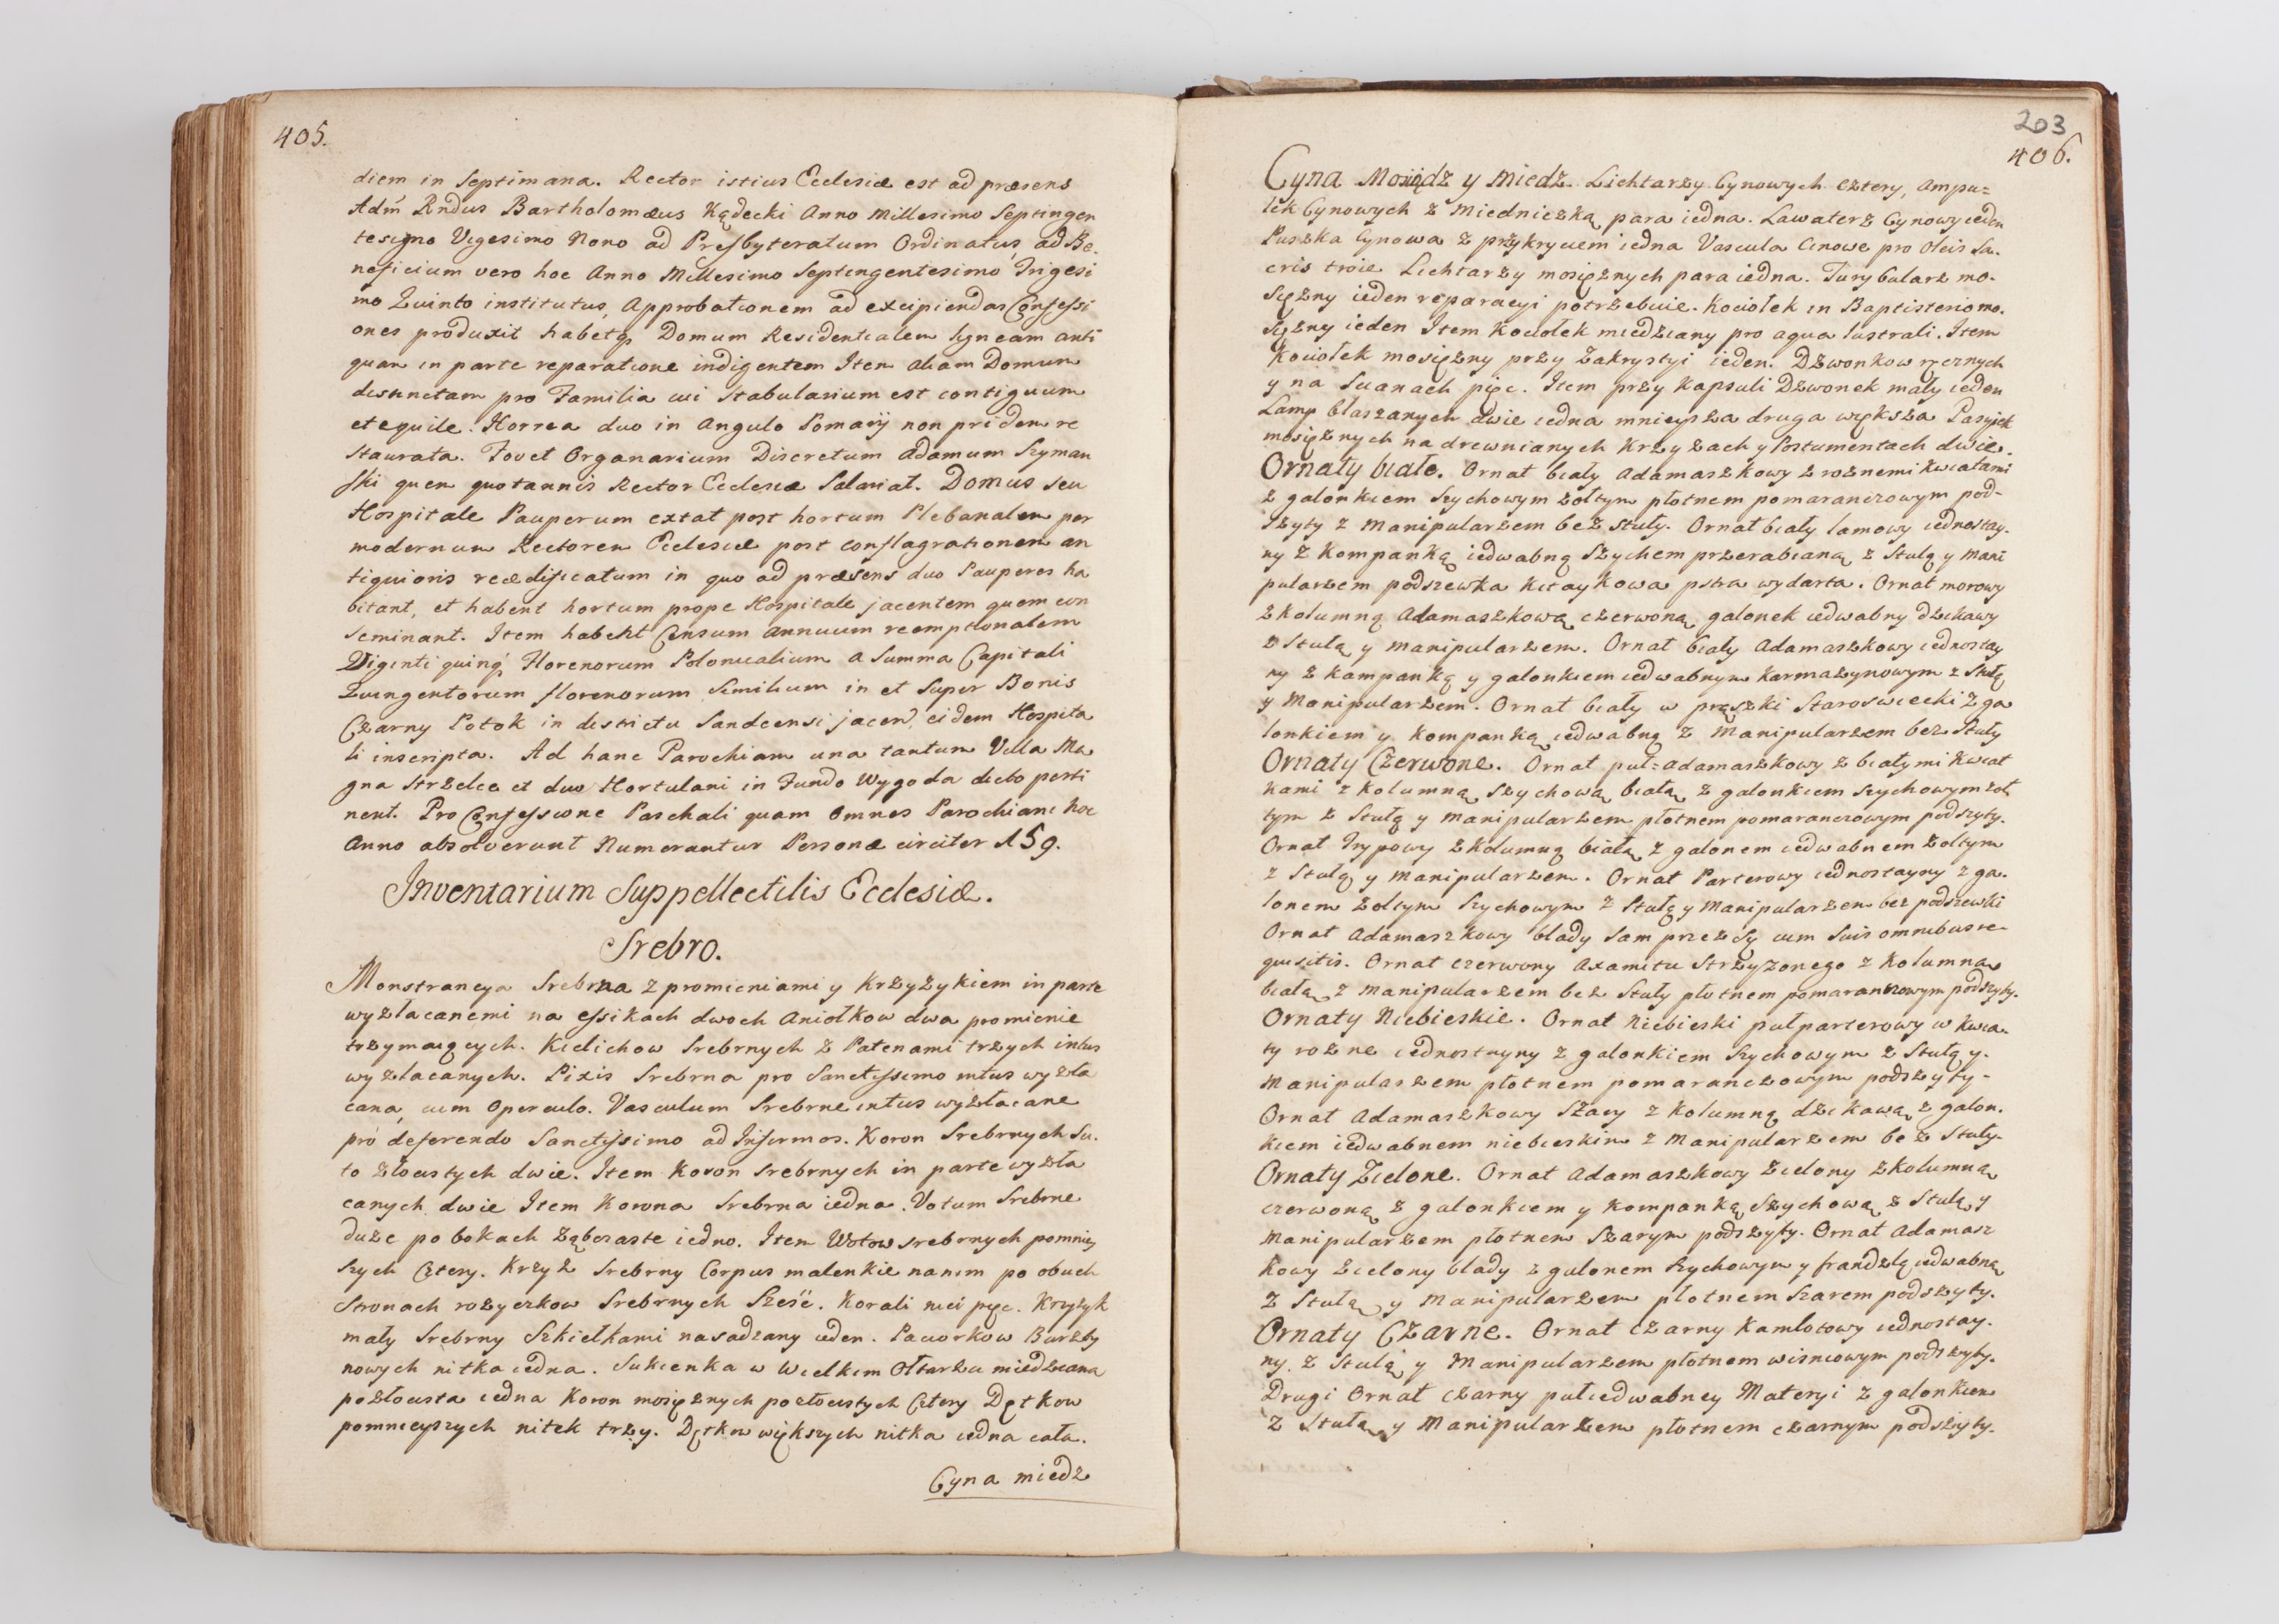 405.
diem in Septimana. Rector istius Ecclesiæ est ad præsens
Adm̃ Rndus Bartholomæus Kądecki Anno Millesimo Septingen
tesimo Vigesimo Nono ad Presbyteratum Ordinatus, ad Be-
neficium vero hoc Anno Millesimo Septingentesimo Trigesi
mo Quinto institutus, Approbationem ad excipiendas Confessi
ones produxit habetq Domum Residentialem ligneam anti
quam in parte reparatione indigentem Item aliam Domum
destinctam pro Familia cui Stabularium est contiguum
et equile. Horrea duo in angulo Pomarij non pridem re
staurata. Fovet Organarium Discretum Adamum Szyman
ski quem quotannis Rector Ecclesiæ Salariat. Domus seu
Hospitale Pauperum extat post hortum Plebanalem per
modernum Rectorem Ecclesiæ post conflagrationem an
tiquioris reædificatum in quo ad præsens duo Pauperes ha
bitant, et habent hortum prope Hospitale jacentem quem con
seminant. Item habent Censum Annuum reemptionalem
Viginti quinq̃ Florenorum Polonicalium a Summa Capitali
Quingentorum florenorum Similium in et Super Bonis
Czarny Potok in districtu Sandecensi jacen̄ eidem Hospita
li inscripta. Ad hanc Parochiam una tantum Villa Ma
gna Strzelce et duo Hortulani in Fundo Wygoda dicto perti
nent. Pro Confessione Paschali quam omnes Parochiani hoc
Anno absolverunt Numerantur Personæ circiter 159.
Inventarium Suppellectilis Ecclesiæ.
Srebro.
Monstrancya Srebrna z promieniami y Krzyżykiem in parte
wyzłacanemi na essikach dwoch Aniołkow dwa promienie
trzymaiących. Kielichow Srebrnych z Patenami trzych intus
wyzłacanych. Pixis Srebrna pro Sanctissimo intus wyzła
cana, cum Operculo. Vasculum Srebrne intus wyzłacane
pro deferendo Sanctissimo ad Infirmos. Koron Srebrnych Su-
to złocistych dwie. Item Koron srebrnych in parte wyzła
canych dwie Item Korona Srebrna iedna. Votum Srebrne
duże po bokach ząbczaste iedno. Item Wotow srebrnych pomniey
szych Cztery. Krzyż Srebrny Corpus malenkie na nim po obuch
Stronach rozyczkow Srebrnych Sześć. Korali nici pięc. Krzyżyk
mały Srebrny Szkiełkami nasadzany ieden. Paciorkow Burszty
nowych nitka iedna. Sukienka w Wielkim Ołtarzu miedziana
pozłocista iedna Koron mosiężnych pozłocistych Cztery Dętkow
pomnieyszych nitek trzy. Dętkow większych nitka iedna cała.
Cyna miedz
203
406.
Cyna Mosiądz y Miedz. Lichtarzy Cynowych cztery, Ampu=
lek Cynowych z Miedniczką para iedna. Lawaterz Cynowy ieden
Puszka Cynowa z przykryciem iedna Vascula Cinowe pro Oleis Sa-
cris troie Lichtarzy mosiężnych para iedna. Turybularz mo-
siężny ieden reparacyi potrzebuie. Kociołek in Baptisterio mo-
siężny ieden Item Kociołek miedziany pro aqua lustrali. Item
Kociołek mosiężny przy Zakrystyi ieden. Dzwonkow ręcznych
y na Scianach pięc. Item przy Kapsuli Dzwonek mały ieden
Lamp blaszanych dwie iedna mnieysza druga większa Pasyiek
mosiężnych na drewnianych Krzyżach y Postumentach dwie.
Ornaty białe. Ornat biały Adamaszkowy z roznemi kwiatami
z galonkiem Szychowym żołtym płotnem pomaranczowym pod-
szyty z Manipularzem bez stuły. Ornat biały lamowy iednostay-
ny z Kompanką iedwabną Szychem przerabianą z Stułą y Mani
pularzem podszewka Kitaykowa pstra wydarta. Ornat morowy
z Kolumną Adamaszkową czerwoną galonek iedwabny dzikawy
z Stułą y manipularzem. Ornat biały Adamaszkowy iednostay
ny z Kampanką y galonkiem iedwabnym Karmazynowym z Stułą
y Manipularzem. Ornat biały w prąszki Staroswiecki z ga
lonkiem y Kompanką iedwabną z Manipularzem bez Stuły
Ornaty Czerwone. Ornat puł=adamaszkowy z białymi Kwiat
kami z kolumną Szychową białą z galonkiem szychowym żoł
tym z Stułą y manipularzem płotnem pomaranczowym podszyty.
Ornat Trypowy z kolumną białą z galonem iedwabnem żołtym
z Stułą y manipularzem. Ornat Parterowy iednostayny z ga-
lonem żołtym Szychowym z Stułą y Manipularzem bez podszewki
Ornat Adamaszkowy blady sam przez się cum Suis omnibus re-
quisitis. Ornat czerwony Axamitu Strzyżonego z Kolumną
białą z Manipularzem bez Stuły płotnem pomaranczowym podszyty.
Ornaty Niebieskie. Ornat Niebieski pułparterowy w kwia-
ty rozne iednostayny z galonkiem Szychowym z Stułą y.
Manipularzem płotnem pomaranczowym podszyty-
Ornat Adamaszkowy Szary z Kolumną dzikawą z galon-
kiem iedwabnem niebieskim z Manipularzem bez Stuły.
Ornaty Zielone. Ornat Adamaszkowy Zielony z kolumną
czerwoną z galonkiem y Kompanką Szychową z Stułą y
Manipularzem płotnem Szarym podszyty. Ornat Adamasz
kowy zielony blady z galonem Szychowym y frandzlą iedwabną
z Stułą y Manipularzem płotnem Szarem podszyty.
Ornaty Czarne. Ornat czarny Kamlotowy iednostay-
ny z Stułą y Manipularzem płotnem wisniowym podszyty.
Drugi Ornat czarny pułiedwabney Materyi z galonkiem
z Stułą y Manipularzem płotnem czarnym podszyty.